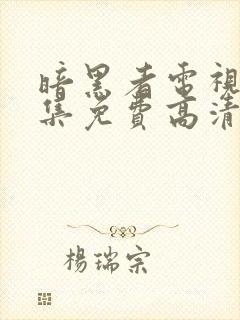 暗黑者電視
集免費高清
楊瑞宗